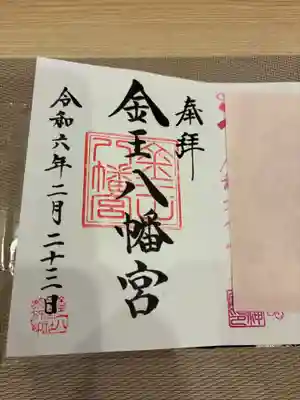 奉拝
金王八幡宮
令和六年二月二十三日